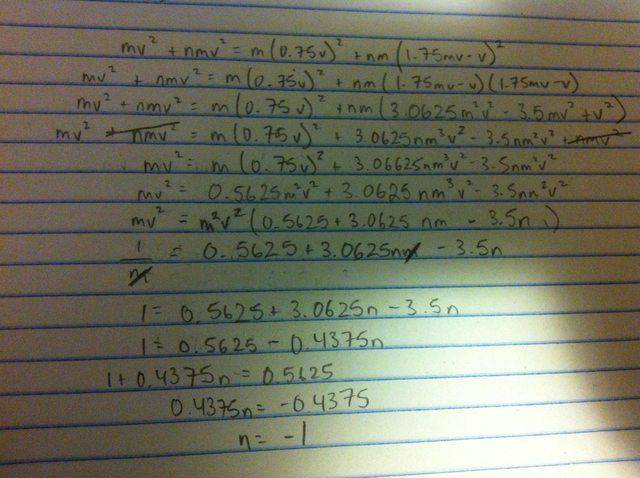 mv² + nmv² = m(0.75v)² + nm(1.75mv - v)²
mv² + nmv² = m(0.75v)² + nm(1.75mv-v)(1.75mv-v)
mv² + nmv² = m(0.75v)² + nm(3.0625m²v² - 3.5mv² + v²)
mv² + nmv² = m(0.75v)² + 3.0625nm³v² - 3.5nm²v² + nmv²
mv² = m(0.75v)² + 3.06625nm³v² - 3.5nm²v²
mv² = 0.5625m²v² + 3.0625nm³v² - 3.5nm²v²
mv² = m²v²(0.5625 + 3.0625 nm - 3.5n)
1/m = 0.5625 + 3.0625nm - 3.5n
1 = 0.5625 + 3.0625n - 3.5n
1 = 0.5625 - 0.4375n
1 + 0.4375n = 0.5625
0.4375n = -0.4375
n = -1